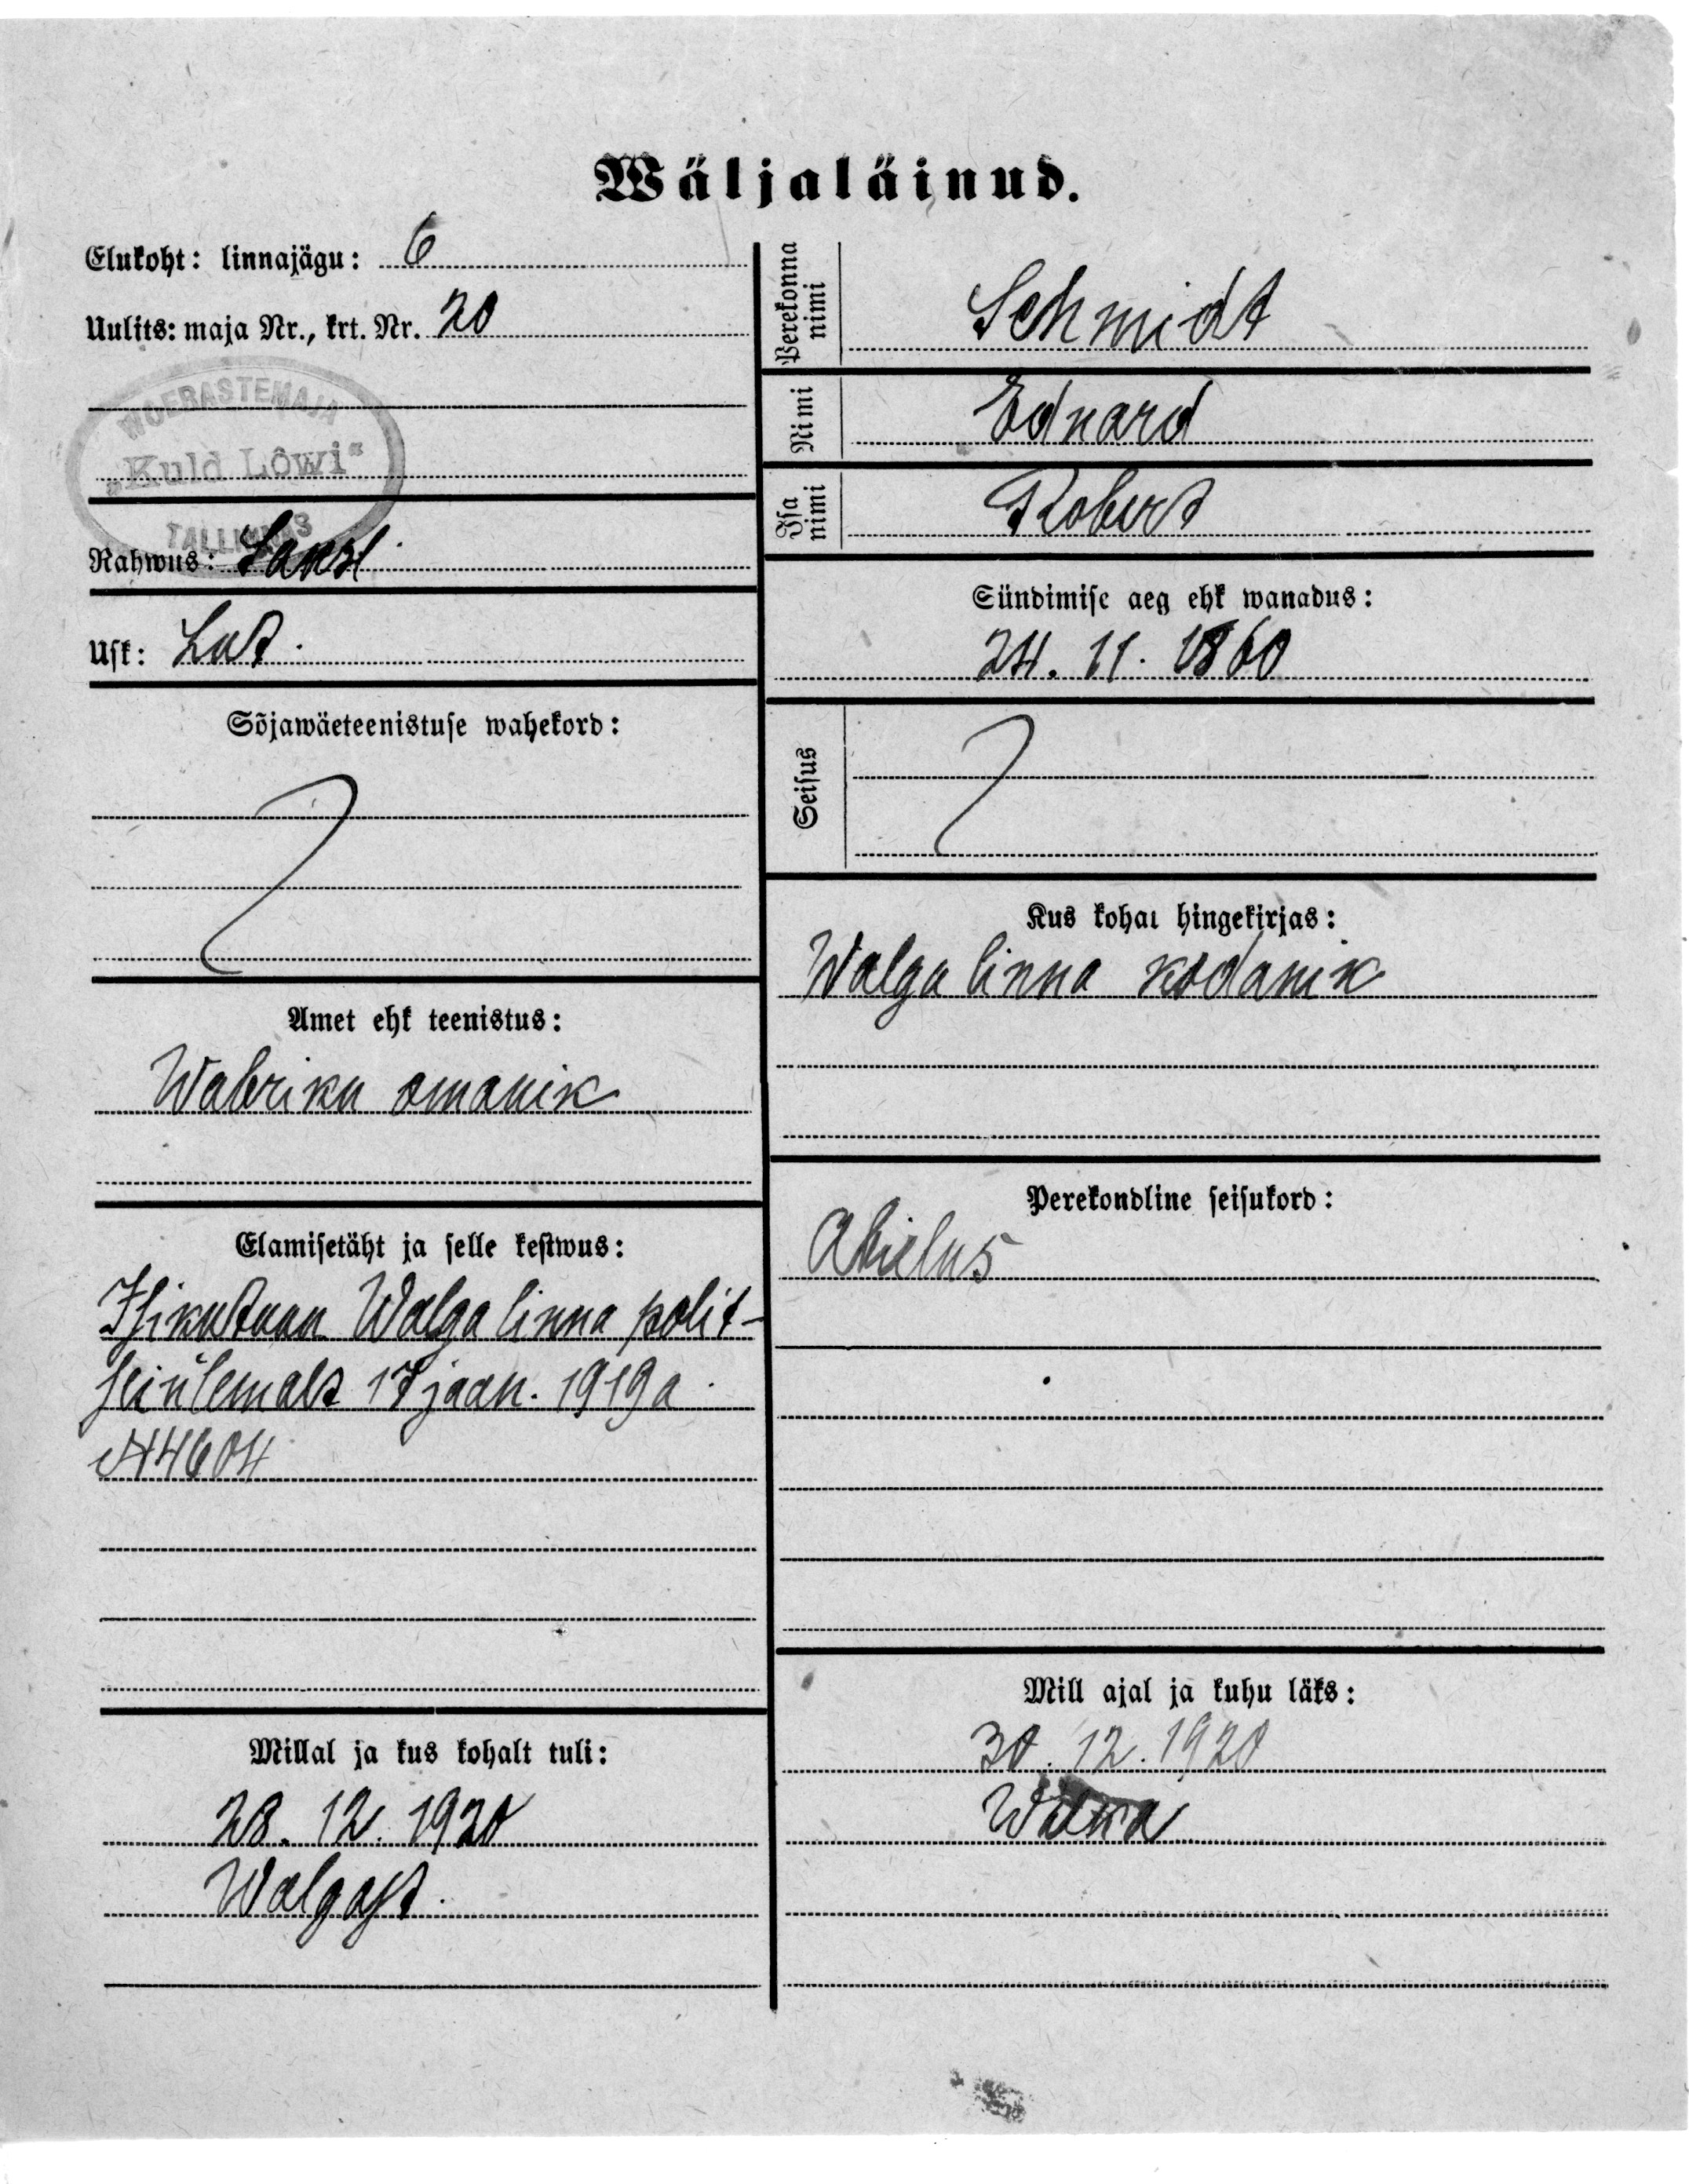 Wäljaläinud.
Elukoht: linnajägu: 6
Uulits: maja Nr., krt. Nr. 20
WOERASTEMAJA
„Kuld Lôwi"
TALLINNAS
Rahwus:
Usk: Lut.
Sõjawäeteenistuse wahekord:
Amet ehk teenistus:
Wabriku omanik
Elamisetäht ja selle kestwus:
Isikutunn Walga linna polit-
seiülemalt 17 jaan. 1919 a.
№ 4604
Millal ja kus kohalt tuli:
28. 12. 1920
Walgast.
Perekonna nimi
Schmidt
Nimi
Eduard
Isa nimi
Robert
Sündimise aeg ehk wanadus:
24. 11. 1860
Seisus
Kus kohal hingekirjas:
Walga linna kodanik
Perekondline seisukord:
Abielus
Mill ajal ja kuhu läks:
30. 12. 1920